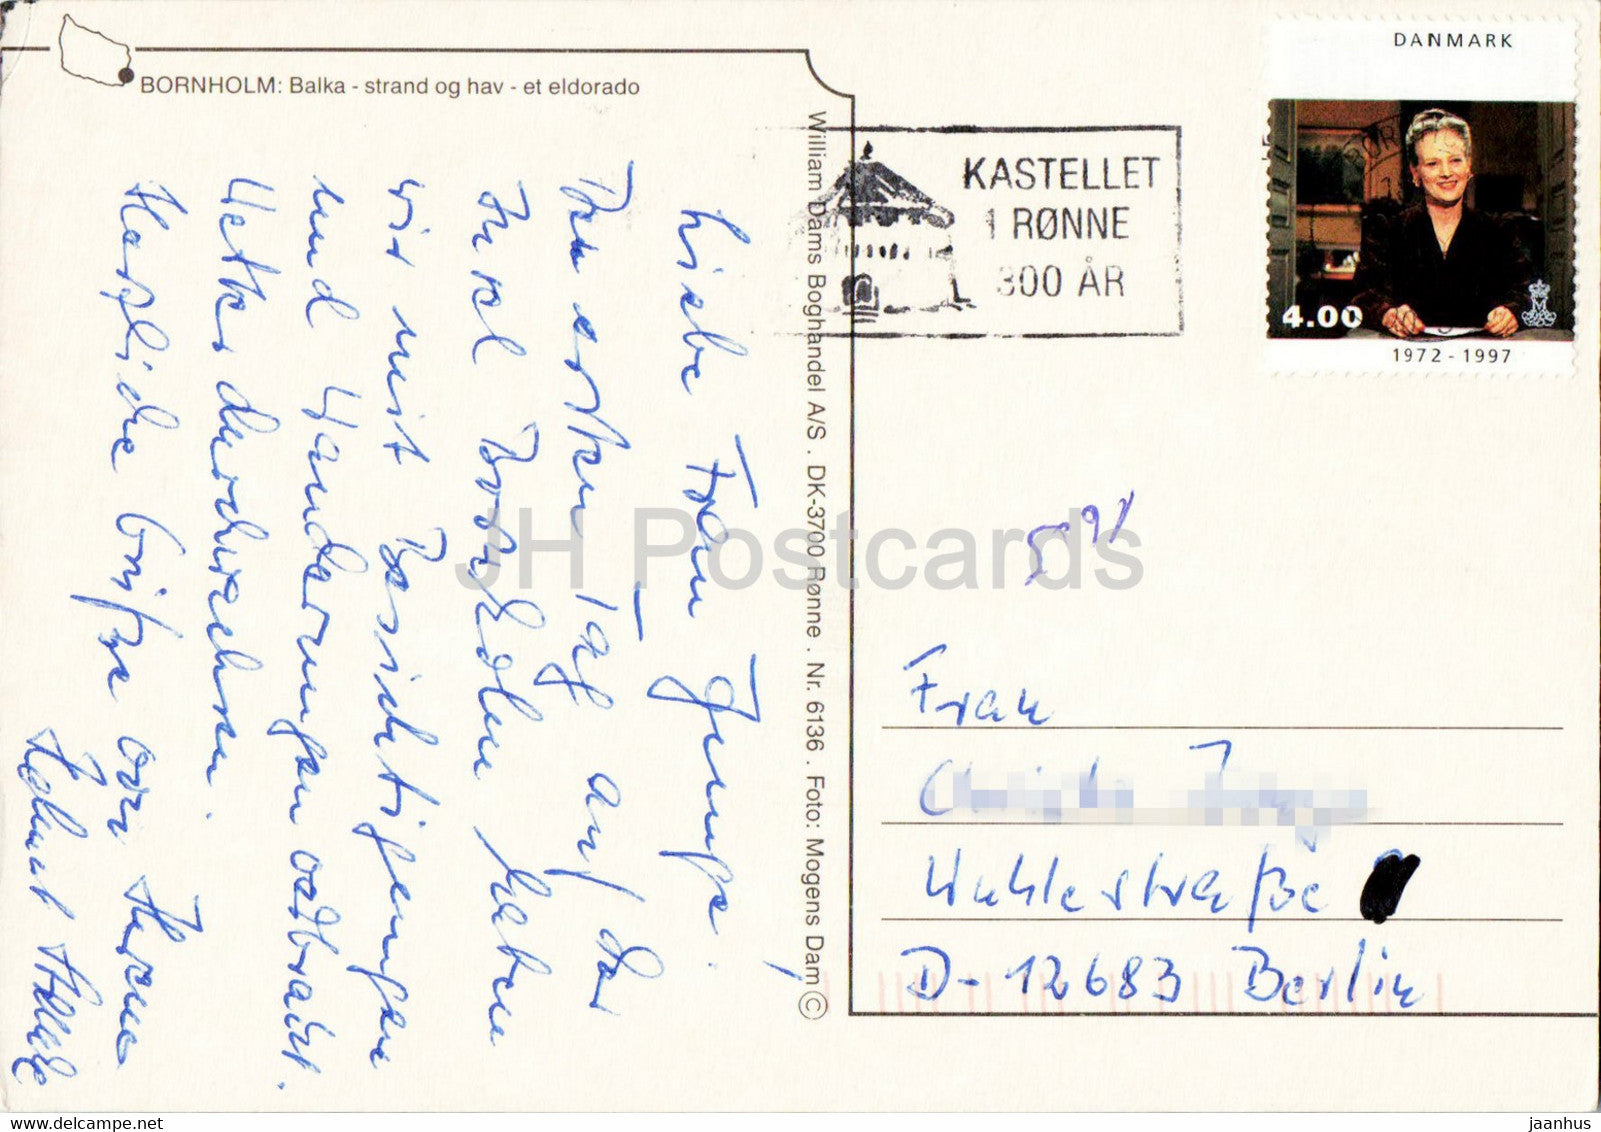 BORNHOLM: Balka - strand og hav - et eldorado
William Dams Boghandel A/S . DK-3700 Rønne . Nr. 6136 . Foto: Mogens Dam ©
KASTELLET
I RØNNE
300 ÅR
DANMARK
4.00
1972 - 1997
Liebe Frau Junge!
Den ersten Tag auf der
Insel Bornholm haben
wir mit Besichtigungen
und Wanderungen verbracht.
Wetter durchwachsen.
Herzliche Grüße von Ihrem
Helmut
Frau
Wuhlestraße
D-12683 Berlin
JH Postcards
www.delcampe.net
jaanhus